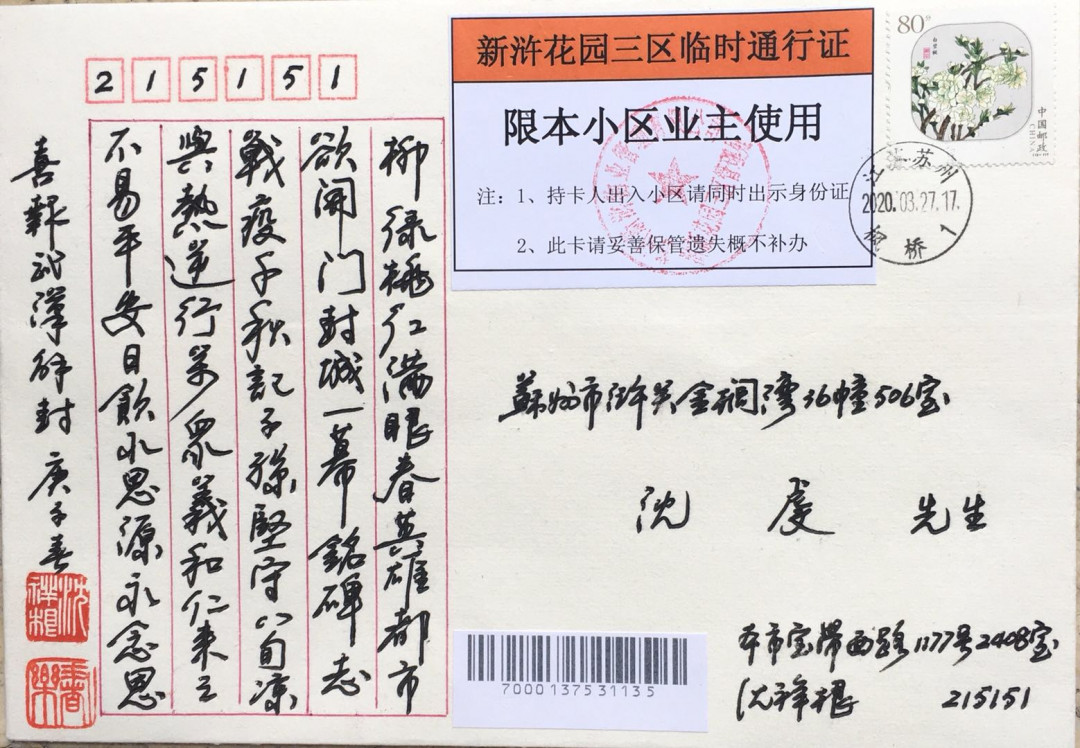 215151
柳绿桃红满眼春英雄都市
欲開门封城一幕銘碑志
戰疫千秋記子孫堅守八旬凉
與熱逆行笑眾義和仁来之
不易平安日飲水思源永念恩
喜報武漢解封 庚子春
新浒花园三区临时通行证
限本小区业主使用
注：1、持卡人出入小区请同时出示身份证
2、此卡请妥善保管遗失概不补办
80分
中国邮政
CHINA
江苏苏州
2020.03.27.17.
桥1
蘇州市浒关金榈湾36幢506室
沈 虔 先生
7000137531135
本市宝带西路1177号2408室
沈祥根 215151